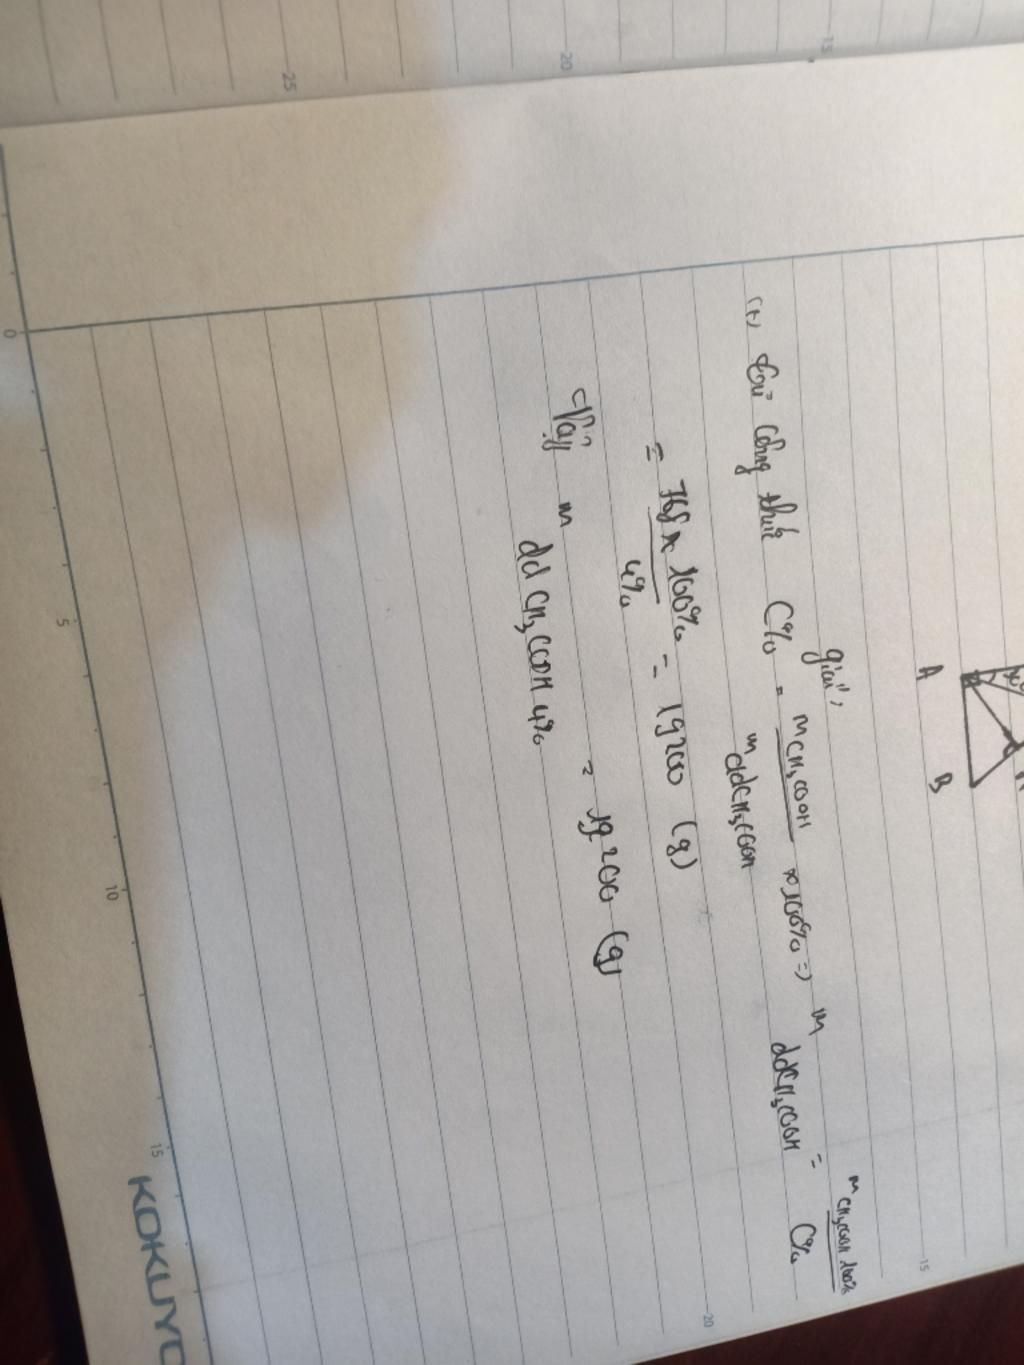 A B
giải:
(+) Từ công thức C% = m CH₃COOH / m ddCH₃COOH × 100% => m ddCH₃COOH = m CH₃COOH 100% / C%
= 768 × 100% / 4% = 19200 (g)
Vậy m dd CH₃COOH 4% = 19200 (g)
15 20 25
0 5 10 15
15 20
KOKUYO